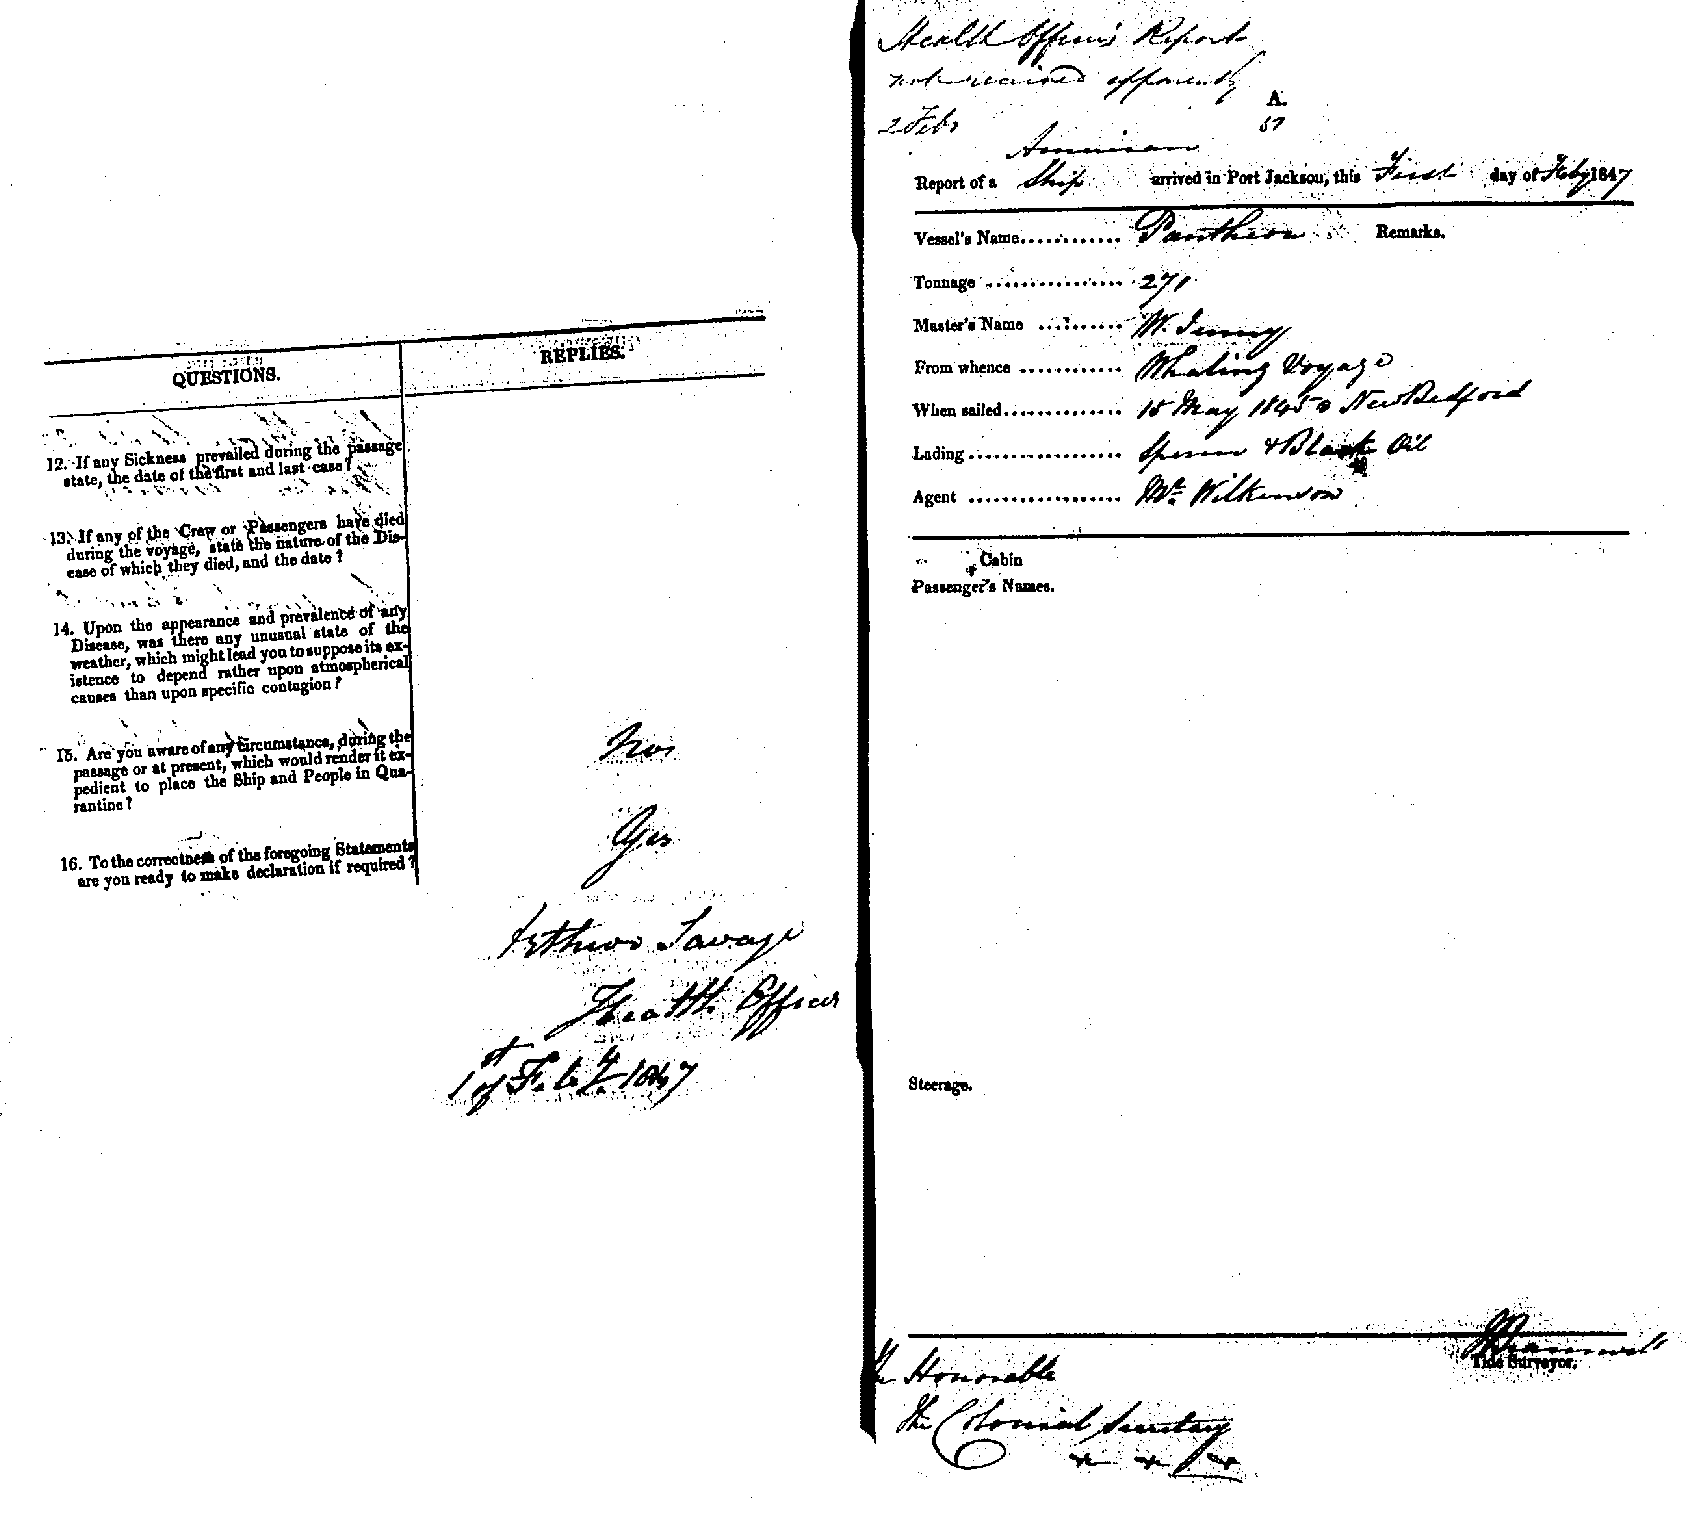 QUESTIONS.
REPLIES.
12. If any Sickness prevailed during the passage
state, the date of the first and last case?
13. If any of the Crew or Passengers have died
during the voyage, state the nature of the Dis-
ease of which they died, and the date?
14. Upon the appearance and prevalence of any
Disease, was there any unusual state of the
weather, which might lead you to suppose its ex-
istence to depend rather upon atmospherical
causes than upon specific contagion?
15. Are you aware of any circumstance, during the
passage or at present, which would render it ex-
pedient to place the Ship and People in Qua-
rantine?
16. To the correctness of the foregoing Statements
are you ready to make declaration if required?
Yes
Arthur Savage
Health Officer
1st of Feby. 1847
Health Officer's Report
not received apparently
2 Feby
A.
57
American
Report of a Ship arrived in Port Jackson, this First day of Feby 1847
Vessel's Name............ Pantheon Remarks.
Tonnage ................ 271
Master's Name .......... W.
From whence ............ Whaling Voyage
When sailed.............. 15 May 1845 New Bedford
Lading.................. Sperm & Black Oil
Agent .................. Mr. Wilkinson
Cabin
Passenger's Names.
Steerage.
Tide Surveyor.
The Honorable
The Colonial Secretary